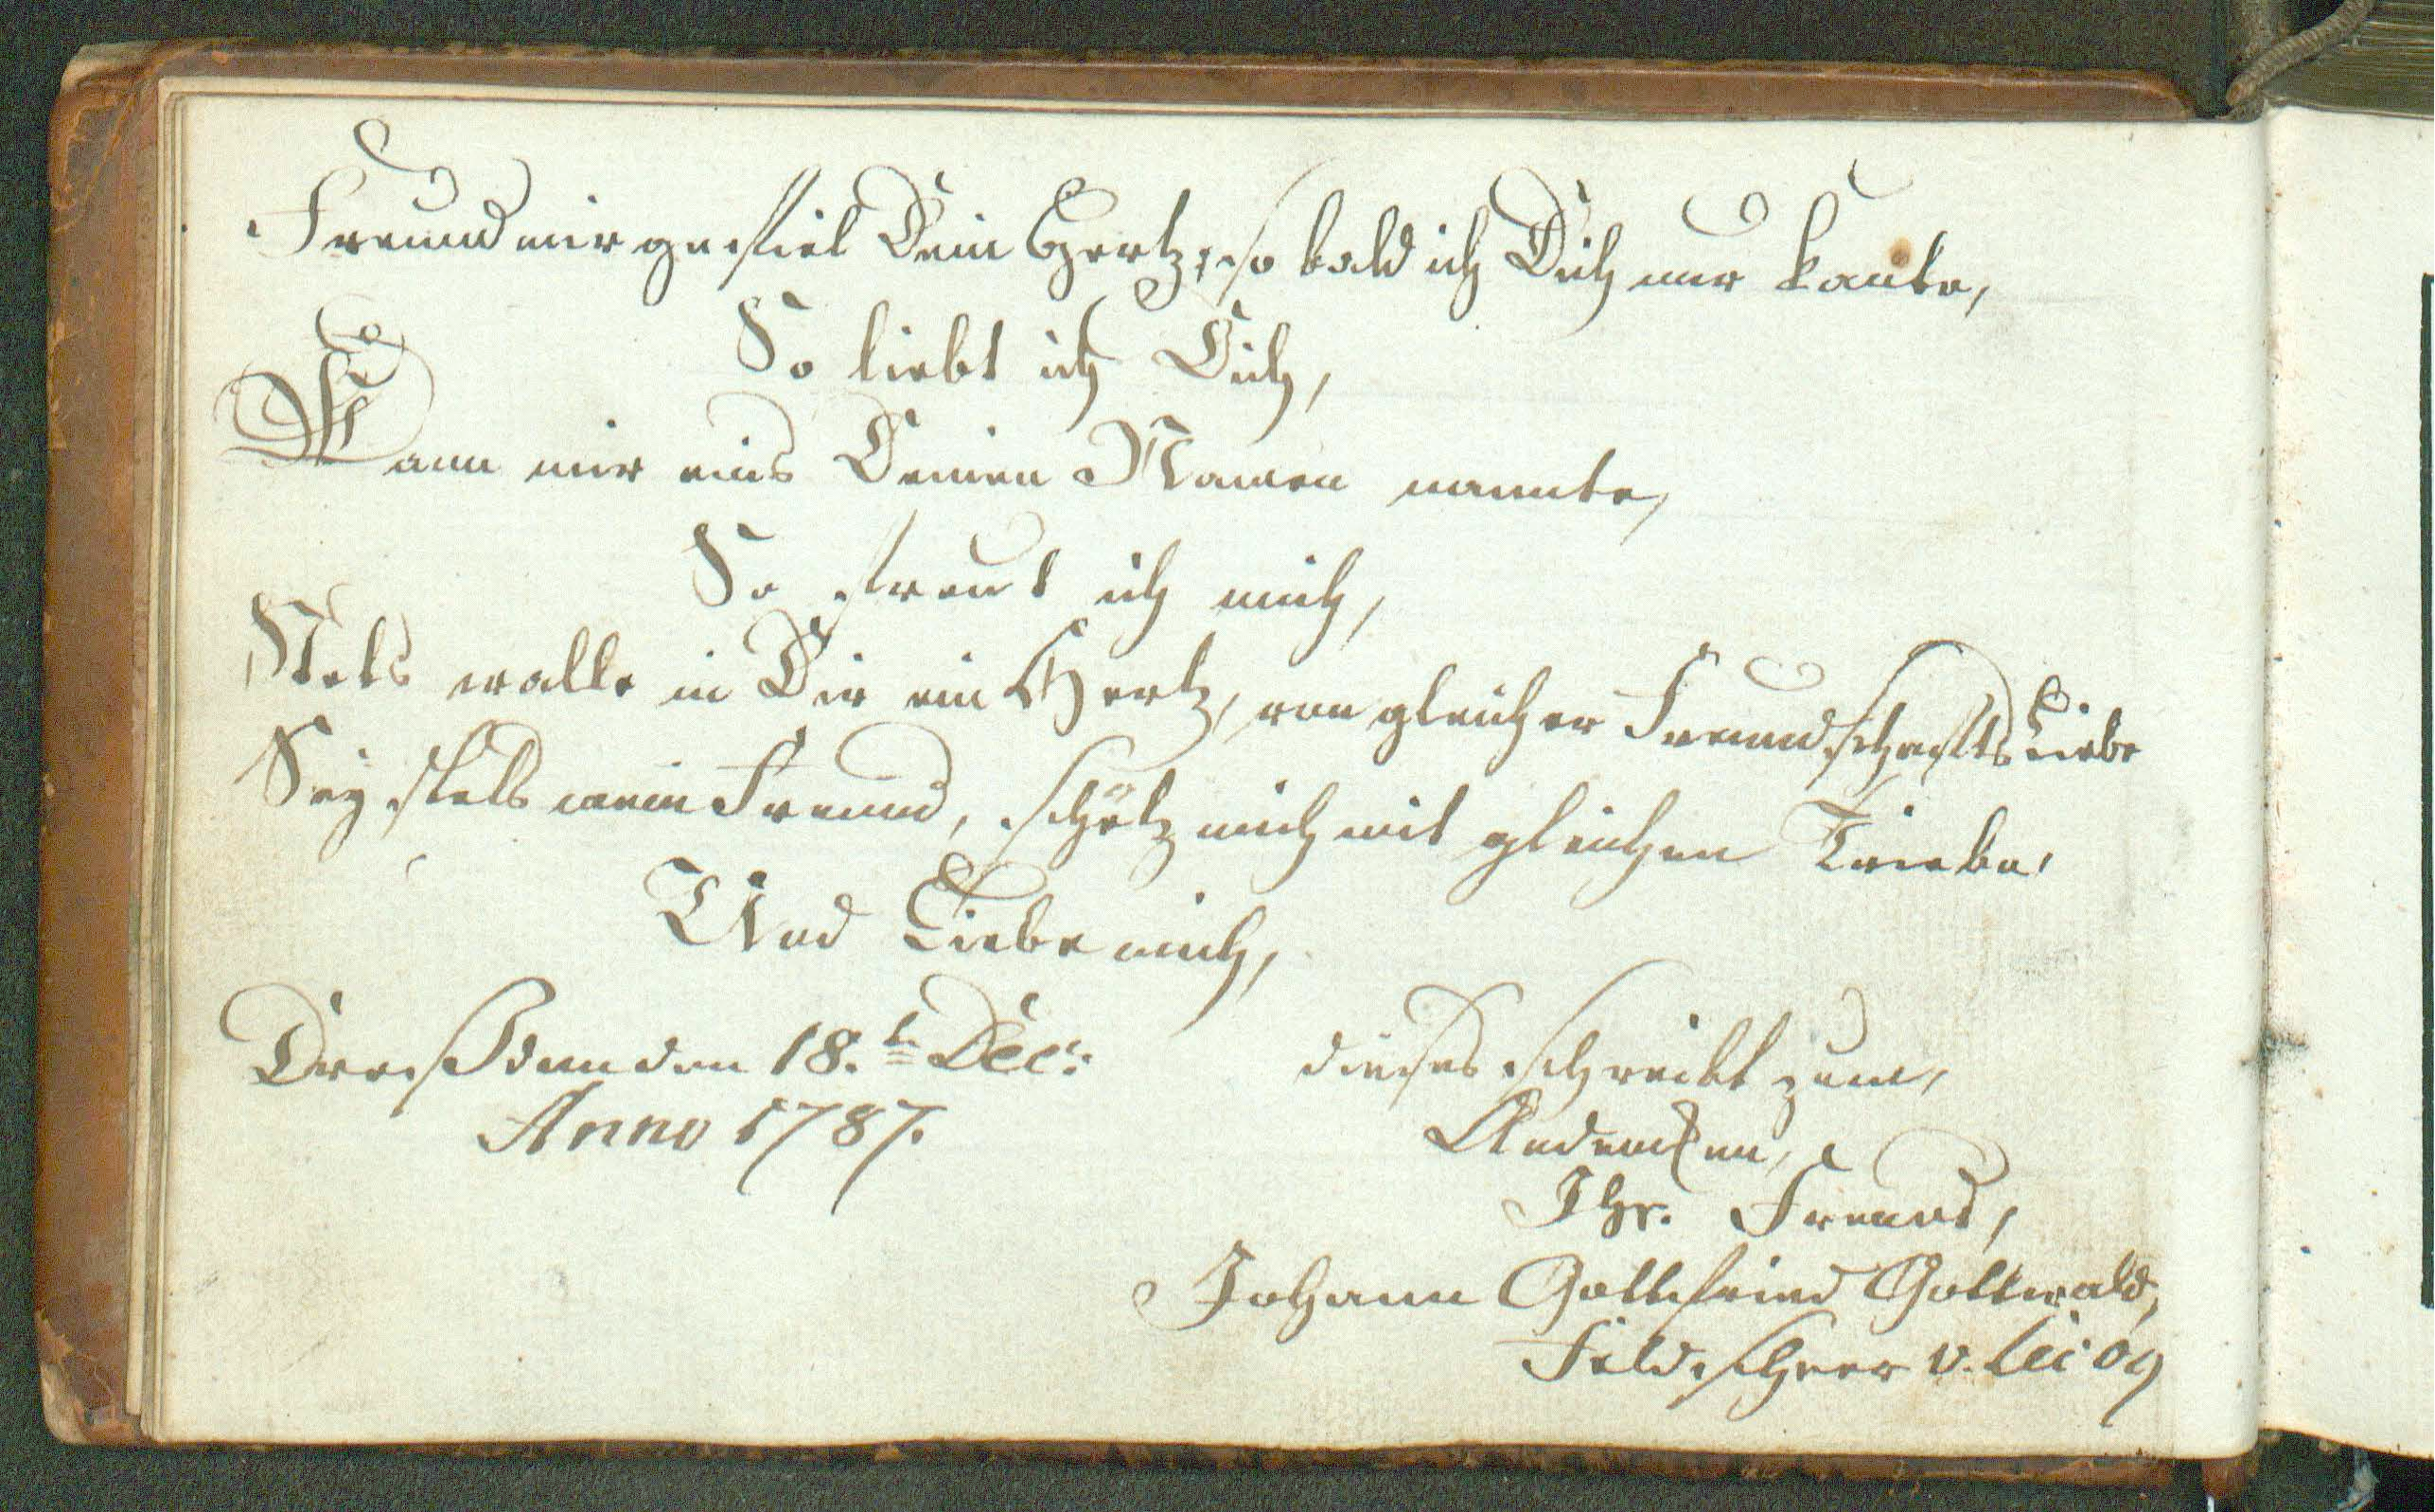 Freund mir gefiel Dein Hertz, so bald ich Dich nur kante,
So liebt ich Dich,
Wann mir eins Deinen Namen nannte,
So freut ich mich,
Stets walle in Dir ein Hertz, von gleicher Freundschafts Liebe
Sey stets mein Freund, schätz mich mit gleichen Triebe,
Und Liebe mich,
Dreßden den 18.t Dec:
Anno 1787.
dieses schreibt zum,
Andencken,
Ihr. Freund,
Johann Gottfried Gottwald,
Feldscheer v.